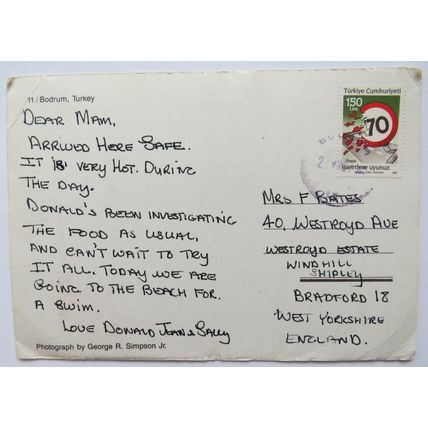 11/Bodrum, Turkey
DEAR MAM,
ARRIVED HERE SAFE.
IT IS VERY HOT. DURING
THE DAY.
DONALD'S BEEN INVESTIGATING
THE FOOD AS USUAL,
AND CAN'T WAIT TO TRY
IT ALL. TODAY WE ARE
GOING TO THE BEACH FOR.
A SWIM.
LOVE DONALD JEAN & SALLY
Photograph by George R. Simpson Jr.
Türkiye Cumhuriyeti
150
Lira
70
işaretlere uyunuz.
MRS F BATES
40, WESTROYD AVE
WESTROYD ESTATE
WINDHILL
SHIPLEY
BRADFORD 18
WEST YORKSHIRE
ENGLAND.